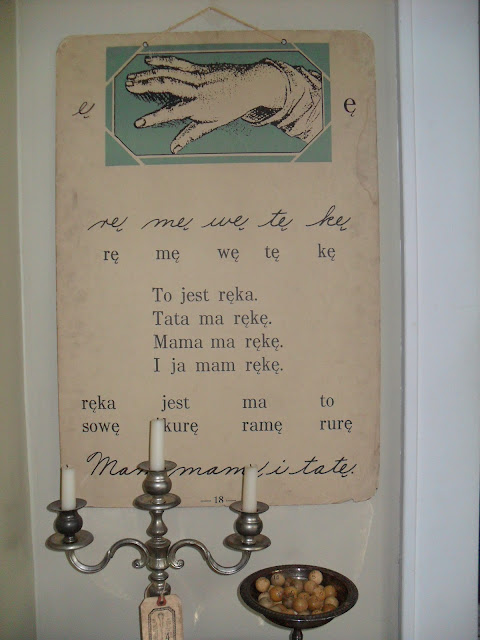 ę ę
rę mę wę tę kę
rę mę wę tę kę
To jest ręka.
Tata ma rękę.
Mama ma rękę.
I ja mam rękę.
ręka jest ma to
sowę kurę ramę rurę
Mam mamę i tatę.
— 18 —